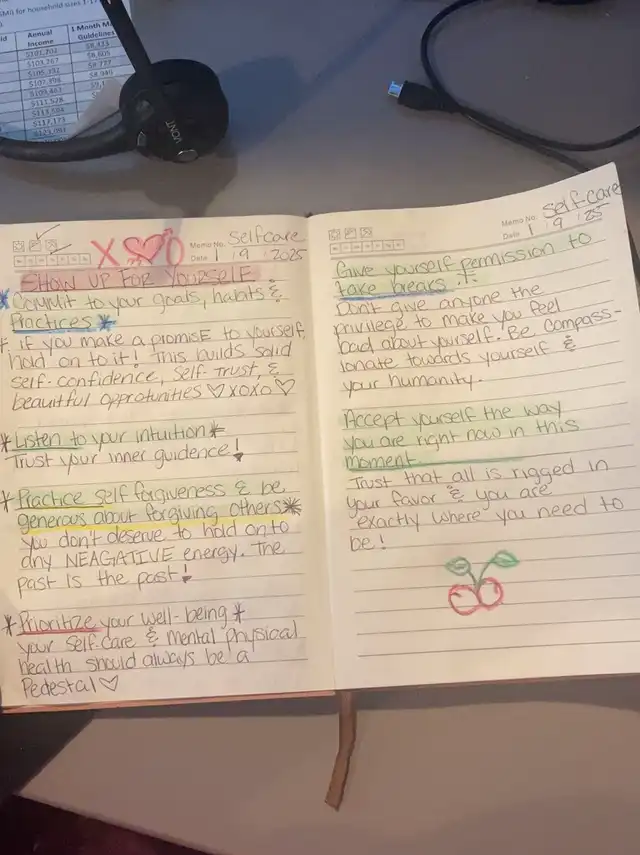 SMI for household sizes 1-17
Annual
Income
1 Month Ma
Guidelines
VXNT
X O
Memo No. Selfcare
Date 1 / 9 / 2025
SHOW UP FOR YOURSELF
* Commit to your goals, habits &
Practices *
if you make a promise to yourself,
hold on to it! This builds solid
self-confidence, self-trust, &
beautiful opprotunities ♡xoxo♡
* Listen to your intuition *
Trust your inner guidence!
* Practice self forgiveness & be
generous about forgiving others *
you don't deserve to hold on to
any NEAGATIVE energy. The
past is the past!
* Prioritize your well-being *
your self-care & mental physical
health should always be a
Pedestal ♡
Memo No. Self-care
Date 1 / 9 / 25
Give yourself permission to
take breaks.
Don't give anyone the
privilege to make you feel
bad about yourself. Be compass-
ionate towards yourself &
your humanity.
Accept yourself the way
you are right now in this
moment
Trust that all is rigged in
your favor & you are
exactly where you need to
be!